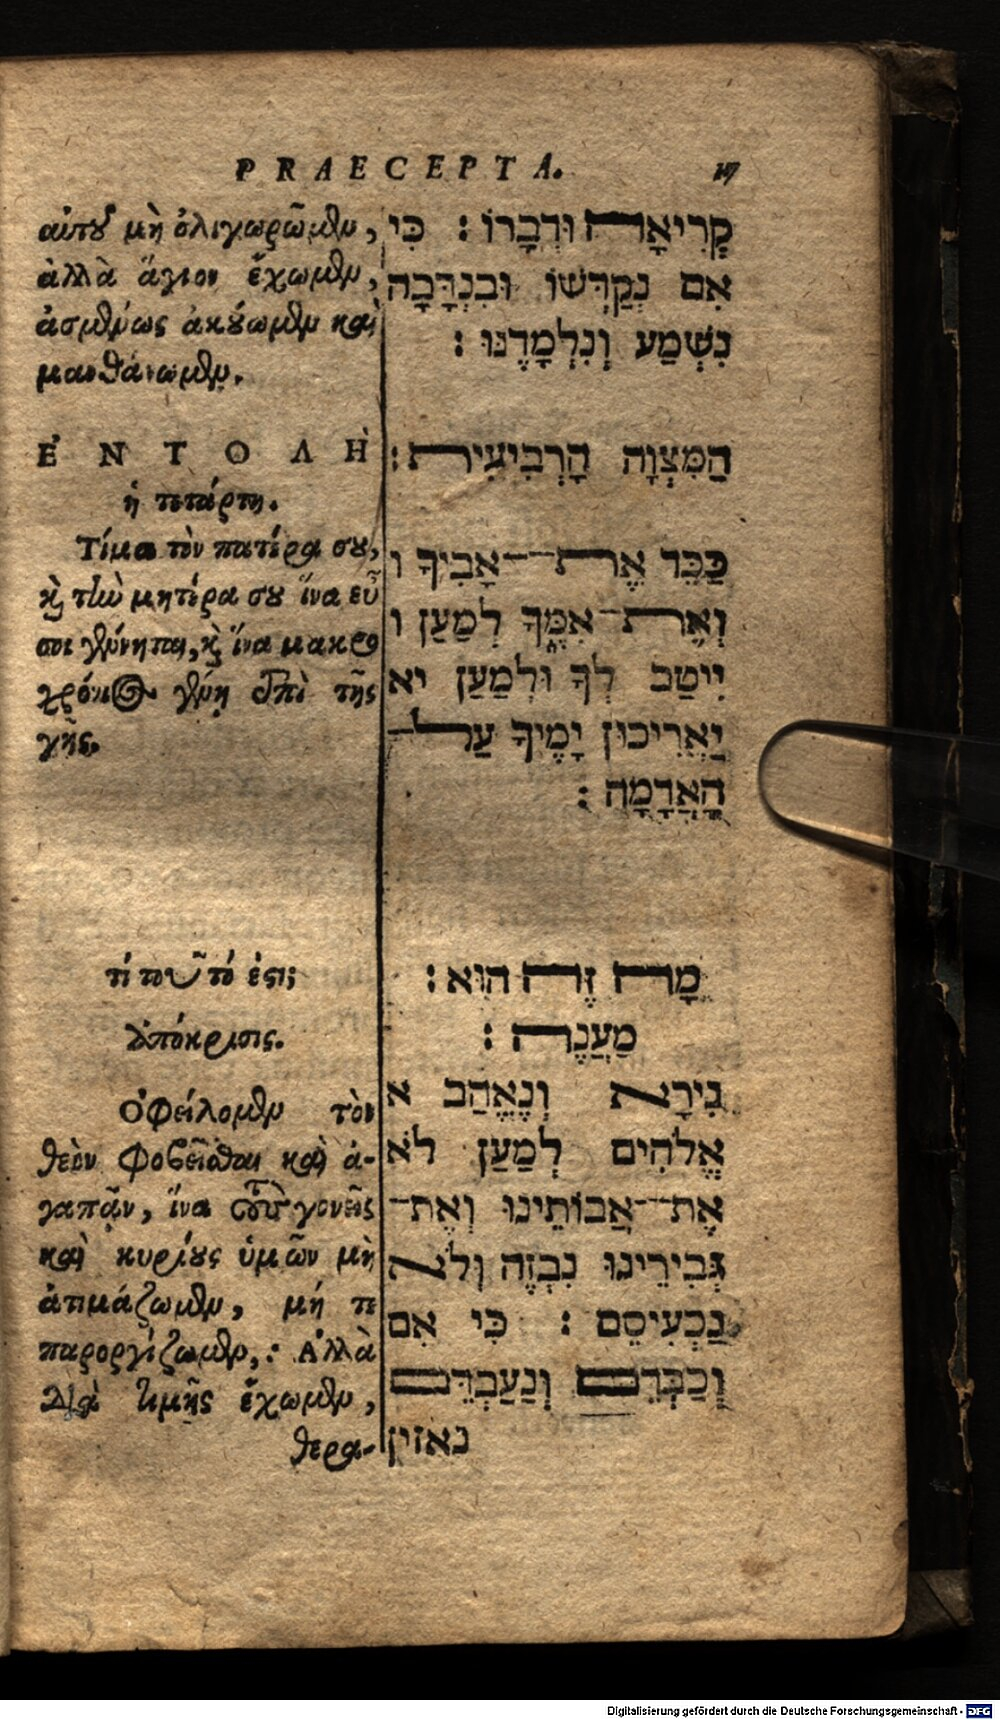 PRAECEPTA. 17
αὐτοῦ μὴ ὀλιγωρῶμεν,
ἀλλὰ ἅγιον ἔχωμεν,
ἀσμένως ἀκούωμεν καὶ
μανθάνωμεν.
ΕΝΤΟΛΗ
ἡ τετάρτη.
Τίμα τὸν πατέρα σου,
κὶ τὴν μητέρα σου ἵνα εὖ
σοι γένηται, κὶ ἵνα μακρο
χρόνιος γένῃ ἐπὶ τῆς
γῆς.
τί τοῦτό ἐστι;
ἀπόκρισις.
Ὀφείλομεν τὸν
θεὸν φοβεῖσθαι καὶ ἀ-
γαπᾶν, ἵνα τοὺς γονεῖς
καὶ κυρίους ὑμῶν μὴ
ἀτιμάζωμεν, μή τε
παροργίζωμεν,: Ἀλλὰ
διὰ τιμῆς ἔχωμεν,
θερα-
קְרִיאָה וּדְבָרוֹ : כִּי
אִם נְקַדְּשׁוֹ וּבִנְדָבָה
נִשְׁמַע וְנִלְמָדֶנּוּ :
הַמִּצְוָה הָרְבִיעִית :
כַּבֵּד אֶת־אָבִיךָ ו
וְאֶת־אִמֶּךָ לְמַעַן ו
יִיטַב לְךָ וּלְמַעַן יא
יַאֲרִיכוּן יָמֶיךָ עַל־
הָאֲדָמָה :
מָה זֶה הוּא :
מַעֲנֶה :
נִירָא וְנֶאֱהַב א
אֱלֹהִים לְמַעַן לֹא
אֶת־אֲבוֹתֵינוּ וְאֶת־
גְּבִירֵינוּ נִבְזֶה וְלֹא
נַכְעִיסֵם : כִּי אִם
וְכַבְּדֵם וְנַעַבְדֵם
נאזין
Digitalisierung gefördert durch die Deutsche Forschungsgemeinschaft - DFG